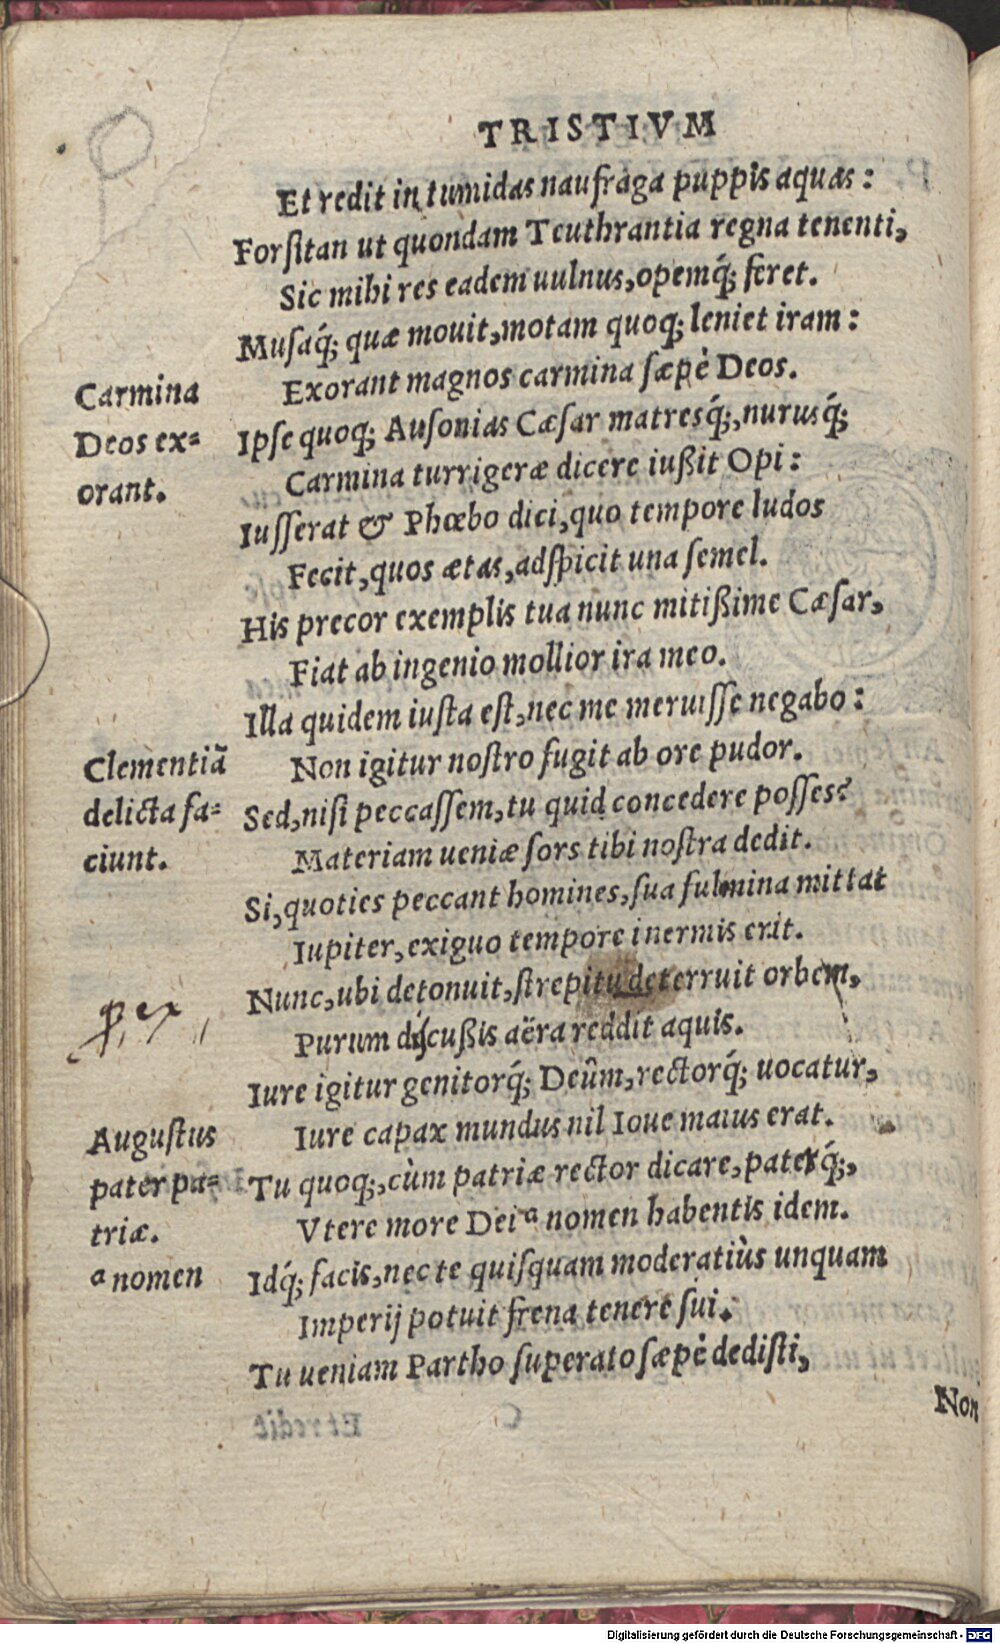 TRISTIVM
Et redit in tumidas naufraga puppis aquas:
Forſitan ut quondam Teuthrantia regna tenenti,
Sic mihi res eadem uulnus, opemq́; feret.
Muſaq́; quæ mouit, motam quoq; leniet iram:
Exorant magnos carmina ſæpè Deos.
Ipſe quoq; Auſonias Cæſar matresq́;, nurusq́;
Carmina turrigeræ dicere iußit Opi:
Iuſſerat & Phœbo dici, quo tempore ludos
Fecit, quos ætas, adſpicit una ſemel.
His precor exemplis tua nunc mitißime Cæſar,
Fiat ab ingenio mollior ira meo.
Illa quidem iuſta eſt, nec me meruiſſe negabo:
Non igitur noſtro fugit ab ore pudor.
Sed, niſi peccaſſem, tu quid concedere poſſes?
Materiam ueniæ ſors tibi noſtra dedit.
Si, quoties peccant homines, ſua fulmina mittat
Iupiter, exiguo tempore inermis erit.
Nunc, ubi detonuit, ſtrepitu deterruit orbem,
Purum diſcußis aëra reddit aquis.
Iure igitur genitorq́; Deûm, rectorq́; uocatur,
Iure capax mundus nil Ioue maius erat.
Tu quoq;, cùm patriæ rector dicare, paterq́;,
Vtere more Dei ᵃ nomen habentis idem.
Idq́; facis, nec te quiſquam moderatiùs unquam
Imperij potuit frena tenere ſui.
Tu ueniam Partho ſuperato ſæpè dediſti,
Non
Carmina
Deos ex=
orant.
Clementiã
delicta fa=
ciunt.
Auguſtus
pater pa=
triæ.
ᵃ nomen
Digitalisierung gefördert durch die Deutsche Forschungsgemeinschaft - DFG